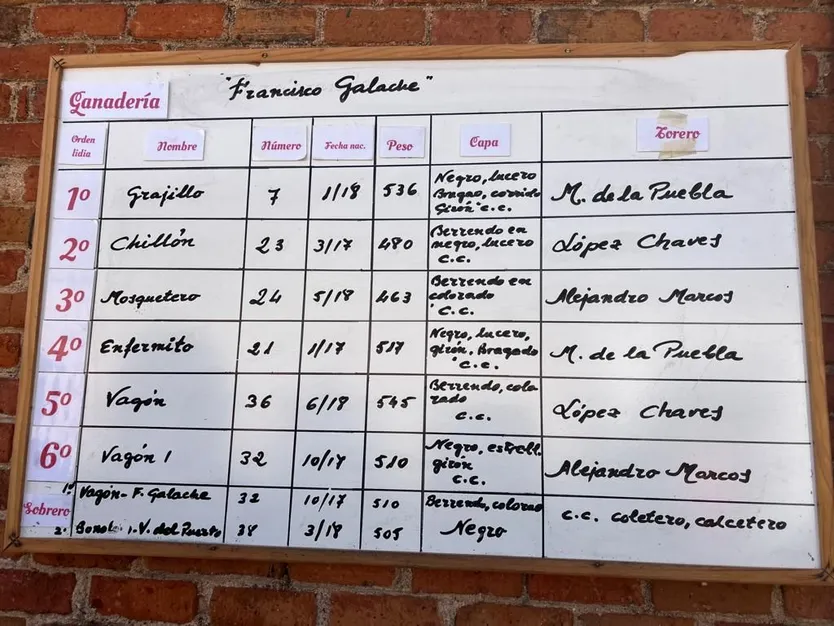 Ganadería "Francisco Galache"
Orden lidia Nombre Número Fecha nac. Peso Capa Torero
1º Grajillo 7 1/18 536 Negro, lucero Bragao, corrido Girón c.c. M. de la Puebla
2º Chillón 23 3/17 480 Berrendo en negro, lucero c.c. López Chaves
3º Mosquetero 24 5/18 463 Berrendo en colorado c.c. Alejandro Marcos
4º Enfermito 21 1/17 517 Negro, lucero, girón, Bragado c.c. M. de la Puebla
5º Vagón 36 6/18 545 Berrendo, colorado c.c. López Chaves
6º Vagón 1 32 10/17 510 Negro, estrell. girón c.c. Alejandro Marcos
Sobrero 1º Vagón - F. Galache 32 10/17 510 Berrendo, colorao c.c. coletero, calcetero
2. V. del Puerto 38 3/18 505 Negro